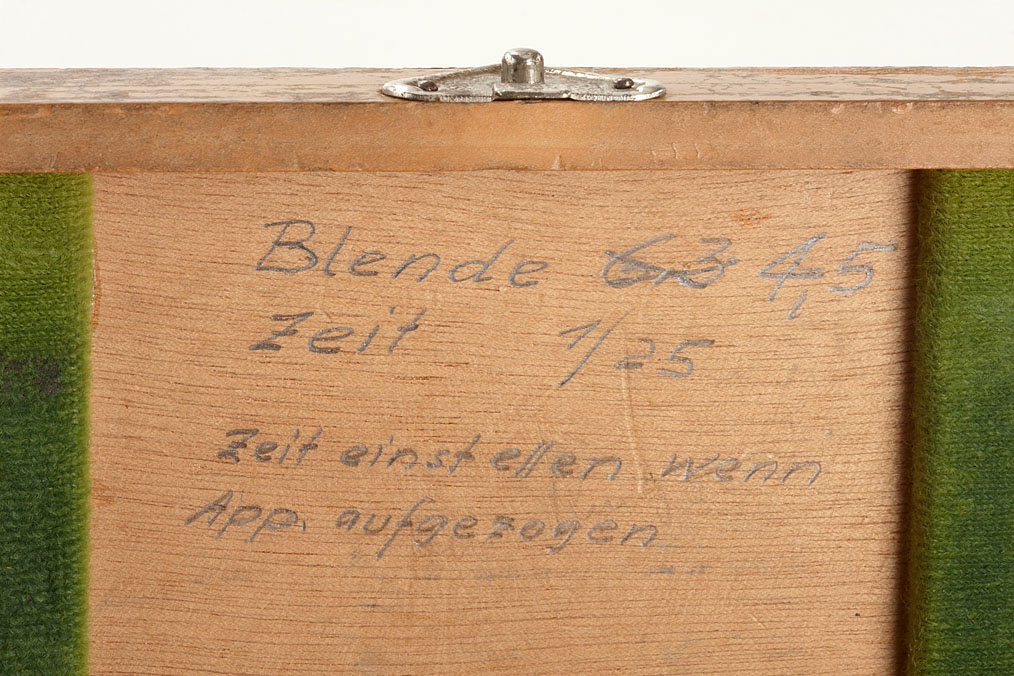 Blende 6.3 4,5
Zeit 1/25
Zeit einstellen wenn
App. aufgezogen